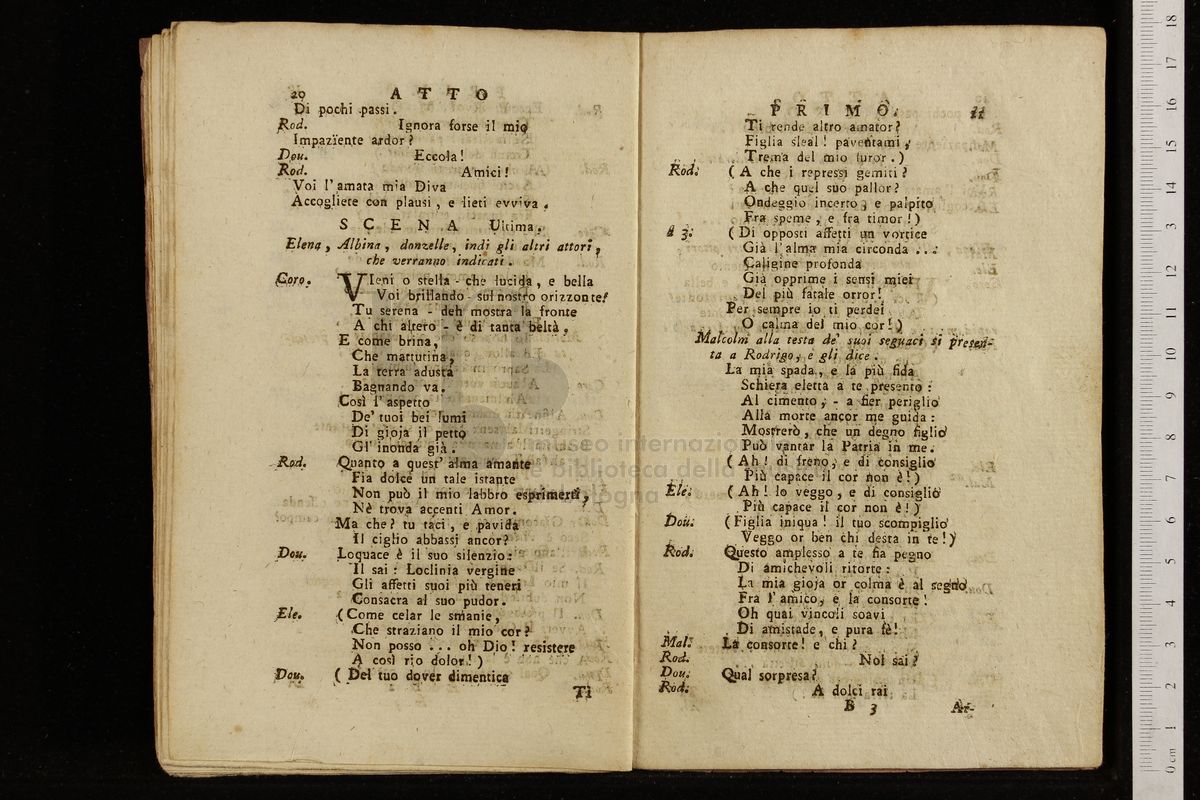 20 ATTO
Di pochi passi.
Rod. Ignora forse il mio
Impaziente ardor?
Dou. Eccola!
Rod. Amici!
Voi l'amata mia Diva
Accogliete con plausi, e lieti evviva.
SCENA Ultima.
Elena, Albina, donzelle, indi gli altri attori,
che verranno indicati.
Coro. VIeni o stella - che lucida, e bella
Voi brillando - sul nostro orizzonte!
Tu serena - deh mostra la fronte
A chi altero - è di tanta beltà.
E come brina,
Che mattutina,
La terra adusta
Bagnando va.
Così l'aspetto
De' tuoi bei lumi
Di gioja il petto
Gl' inonda già.
Rod. Quanto a quest' alma amante
Fia dolce un tale istante
Non può il mio labbro esprimerti,
Nè trova accenti Amor.
Ma che? tu taci, e pavida
Il ciglio abbassi ancor?
Dou. Loquace è il suo silenzio:
Il sai: Loclinia vergine
Gli affetti suoi più teneri
Consacra al suo pudor.
Ele. (Come celar le smanie,
Che straziano il mio cor?
Non posso ... oh Dio! resistere
A così rio dolor!)
Dou. (Del tuo dover dimentica
Ti
PRIMO. 21
Ti rende altro amator?
Figlia sleal! paventami,
Trema del mio furor.)
Rod. (A che i repressi gemiti?
A che quel suo pallor?
Ondeggio incerto, e palpito
Fra speme, e fra timor!)
a 3. (Di opposti affetti un vortice
Già l'alma mia circonda ...
Caligine profonda
Già opprime i sensi miei
Del più fatale orror!
Per sempre io ti perdei
O calma del mio cor!)
Malcolm alla testa de' suoi seguaci si presen-
ta a Rodrigo, e gli dice.
La mia spada, e la più fida
Schiera eletta a te presento:
Al cimento, - a fier periglio
Alla morte ancor me guida:
Mostrerò, che un degno figlio
Può vantar la Patria in me.
(Ah! di freno, e di consiglio
Più capace il cor non è!)
Ele. (Ah! lo veggo, e di consiglio
Più capace il cor non è!)
Dou. (Figlia iniqua! il tuo scompiglio
Veggo or ben chi desta in te!)
Rod. Questo amplesso a te fia pegno
Di amichevoli ritorte:
La mia gioja or colma è al segno
Fra l'amico, e la consorte!
Oh quai vincoli soavi
Di amistade, e pura fè!
Mal. La consorte! e chi?
Rod. Nol sai?
Dou. Qual sorpresa?
Rod. A dolci rai
B 3 Ar-